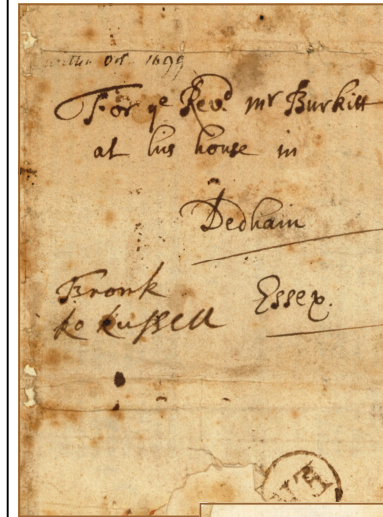 Oct. 1699
For yᵉ Revᵈ mʳ Burkitt
at his house in
Dedham
Essex.
Frank
Ro Russell